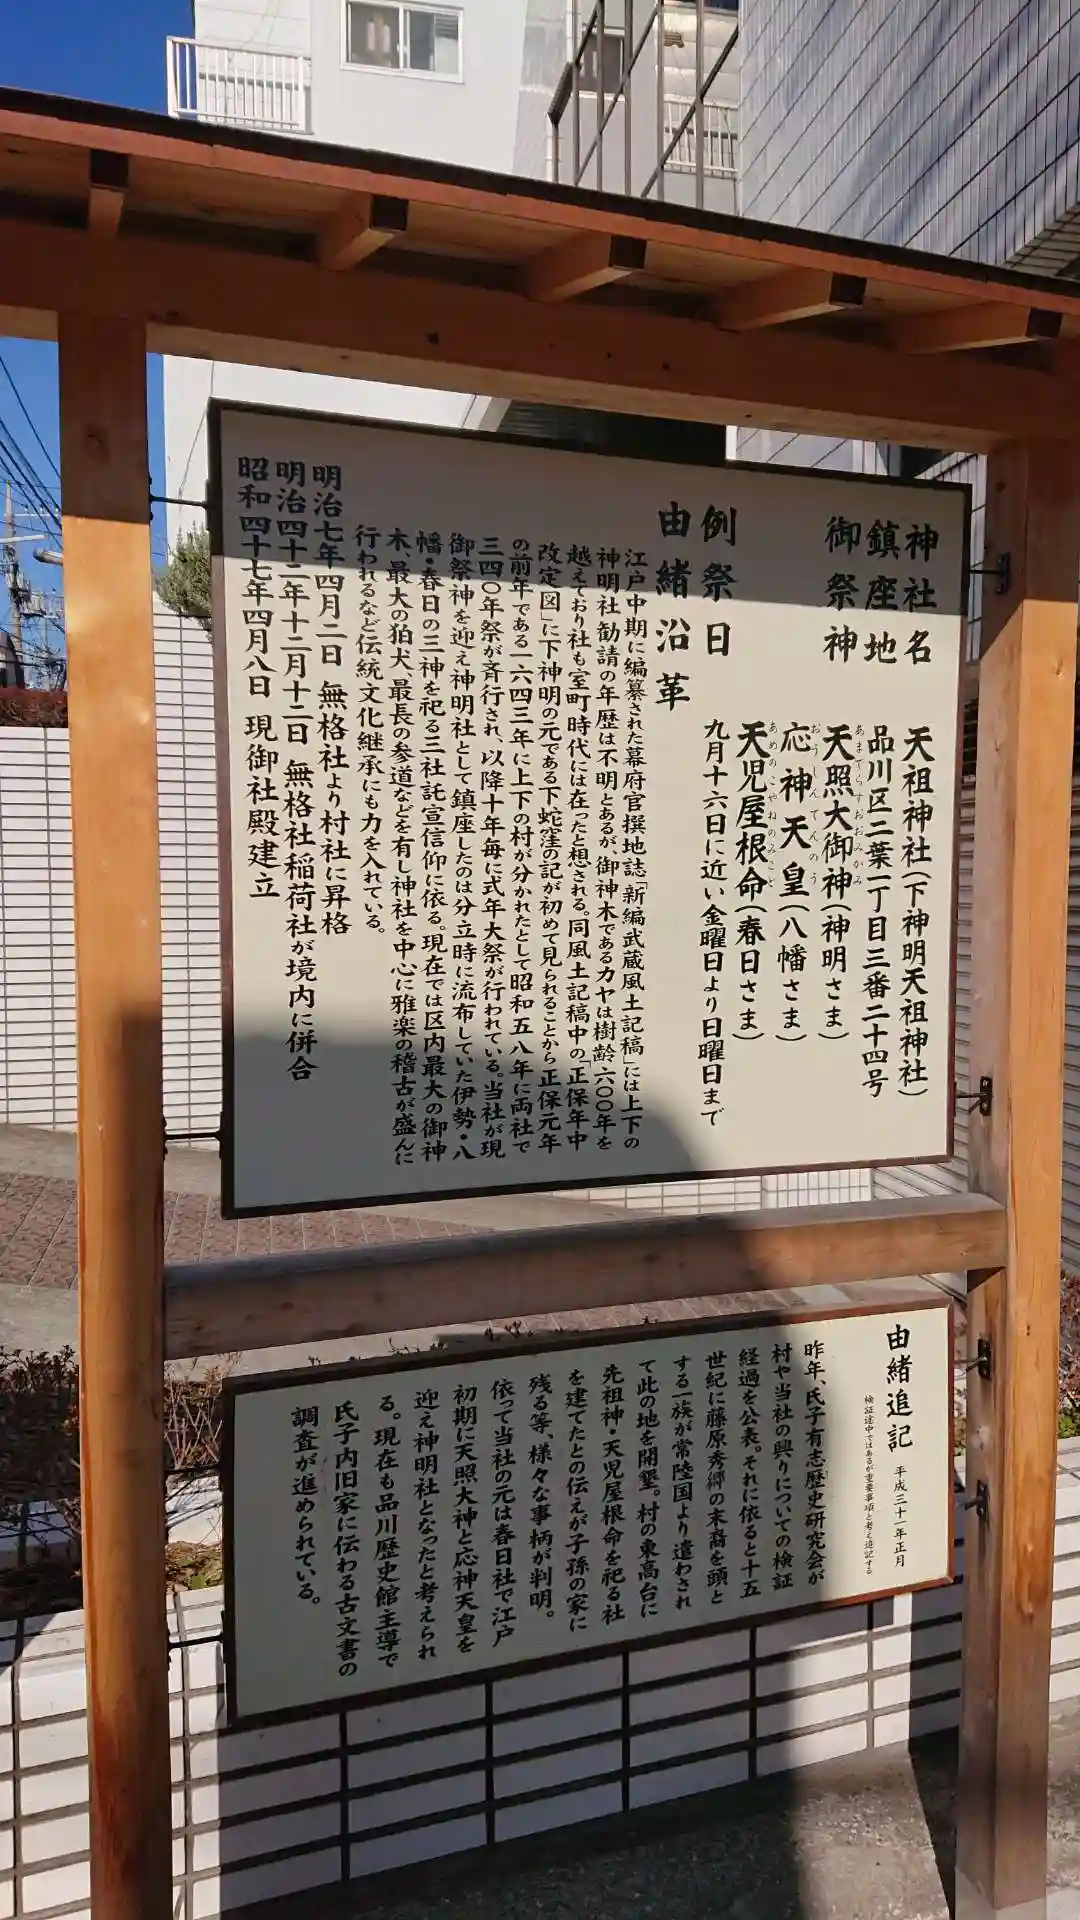 神社名 天祖神社(下神明天祖神社)
鎮座地 品川区二葉一丁目三番二十四号
御祭神 天照大御神(神明さま)
あまてらすおおみかみ
応神天皇(八幡さま)
おうじんてんのう
天児屋根命(春日さま)
あめのこやねのみこと
例祭日 九月十六日に近い金曜日より日曜日まで
由緒沿革
江戸中期に編纂された幕府官撰地誌「新編武蔵風土記稿」には上下の
神明社勧請の年歴は不明とあるが、御神木であるカヤは樹齢六〇〇年を
越えており社も室町時代には在ったと想される。同風土記稿中の「正保年中
改定図」に下神明の元である下蛇窪の記が初めて見られることから正保元年
の前年である一六四三年に上下の村が分かれたとして昭和五八年に両社で
三四〇年祭が斉行され、以降十年毎に式年大祭が行われている。当社が現
御祭神を迎え神明社として鎮座したのは分立時に流布していた伊勢・八
幡・春日の三神を祀る三社託宣信仰に依る。現在では区内最大の御神
木、最大の狛犬、最長の参道などを有し神社を中心に雅楽の稽古が盛んに
行われるなど伝統文化継承にも力を入れている。
明治七年四月二日 無格社より村社に昇格
明治四十二年十二月十二日 無格社稲荷社が境内に併合
昭和四十七年四月八日 現御社殿建立
由緒追記 平成三十一年正月
検証途中ではあるが重要事項と考え追記する
昨年、氏子有志歴史研究会が
村や当社の興りについての検証
経過を公表。それに依ると十五
世紀に藤原秀郷の末裔を頭と
する一族が常陸国より遣わされ
て此の地を開墾。村の東高台に
先祖神・天児屋根命を祀る社
を建てたとの伝えが子孫の家に
残る等、様々な事柄が判明。
依って当社の元は春日社で江戸
初期に天照大神と応神天皇を
迎え神明社となったと考えられ
る。現在も品川歴史館主導で
氏子内旧家に伝わる古文書の
調査が進められている。